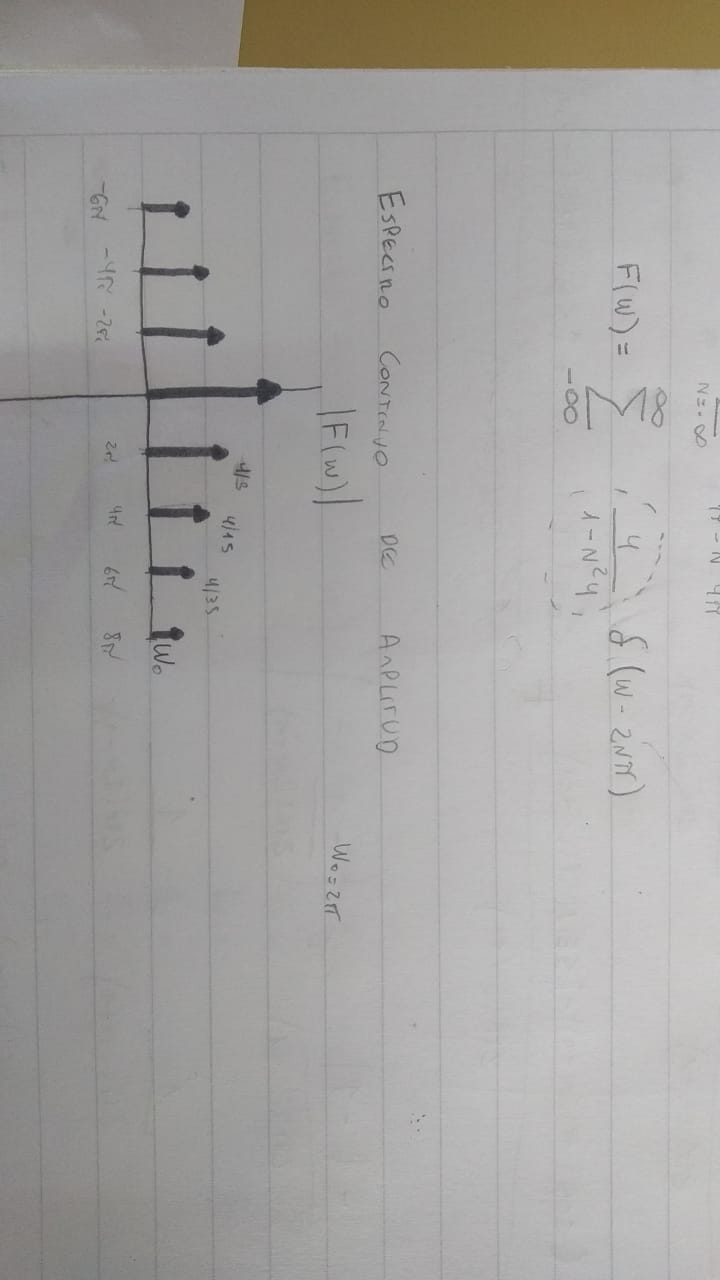 N=-∞
F(W) = ∞ Σ -∞ ( 4 / 1-N²4 ) δ (W - 2Nπ)
ESPECTRO CONTINUO DE AMPLITUD
W₀=2π
|F(W)|
4/3
4/15
4/35
W₀
-6π -4π -2π 2π 4π 6π 8π